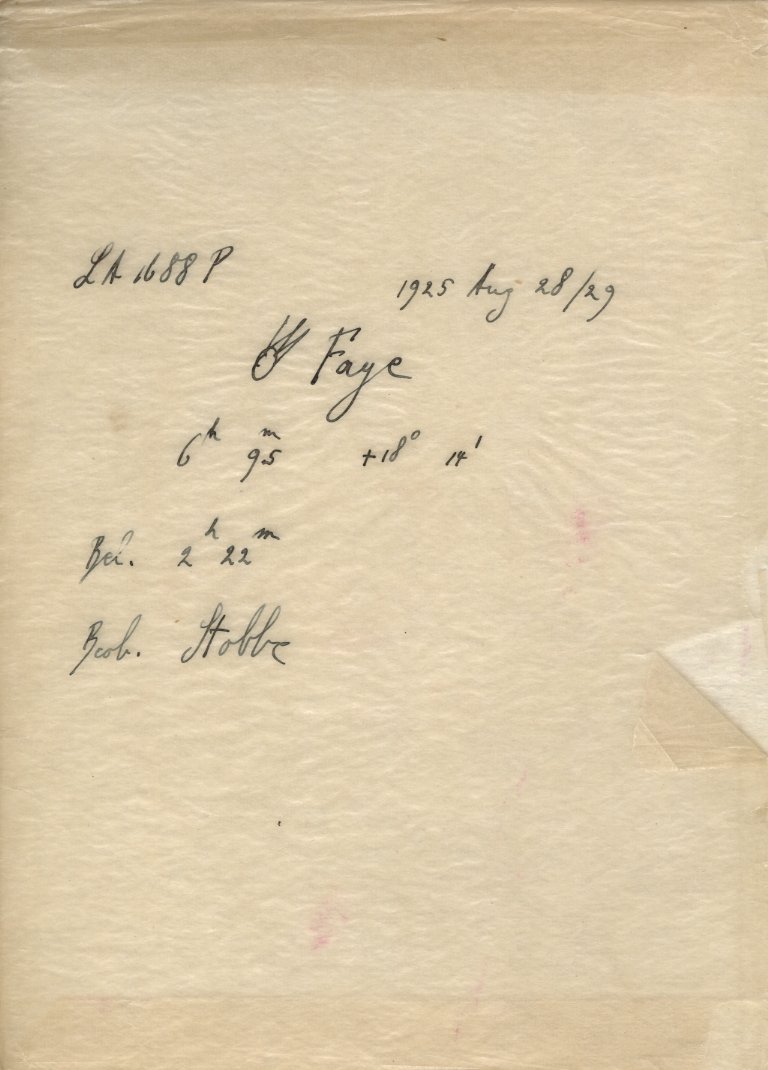 LA 1688 P
1925 Aug 28/29
☄ Faye
6h 95m +18° 14'
Bel. 2h 22m
Beob. Stobbe